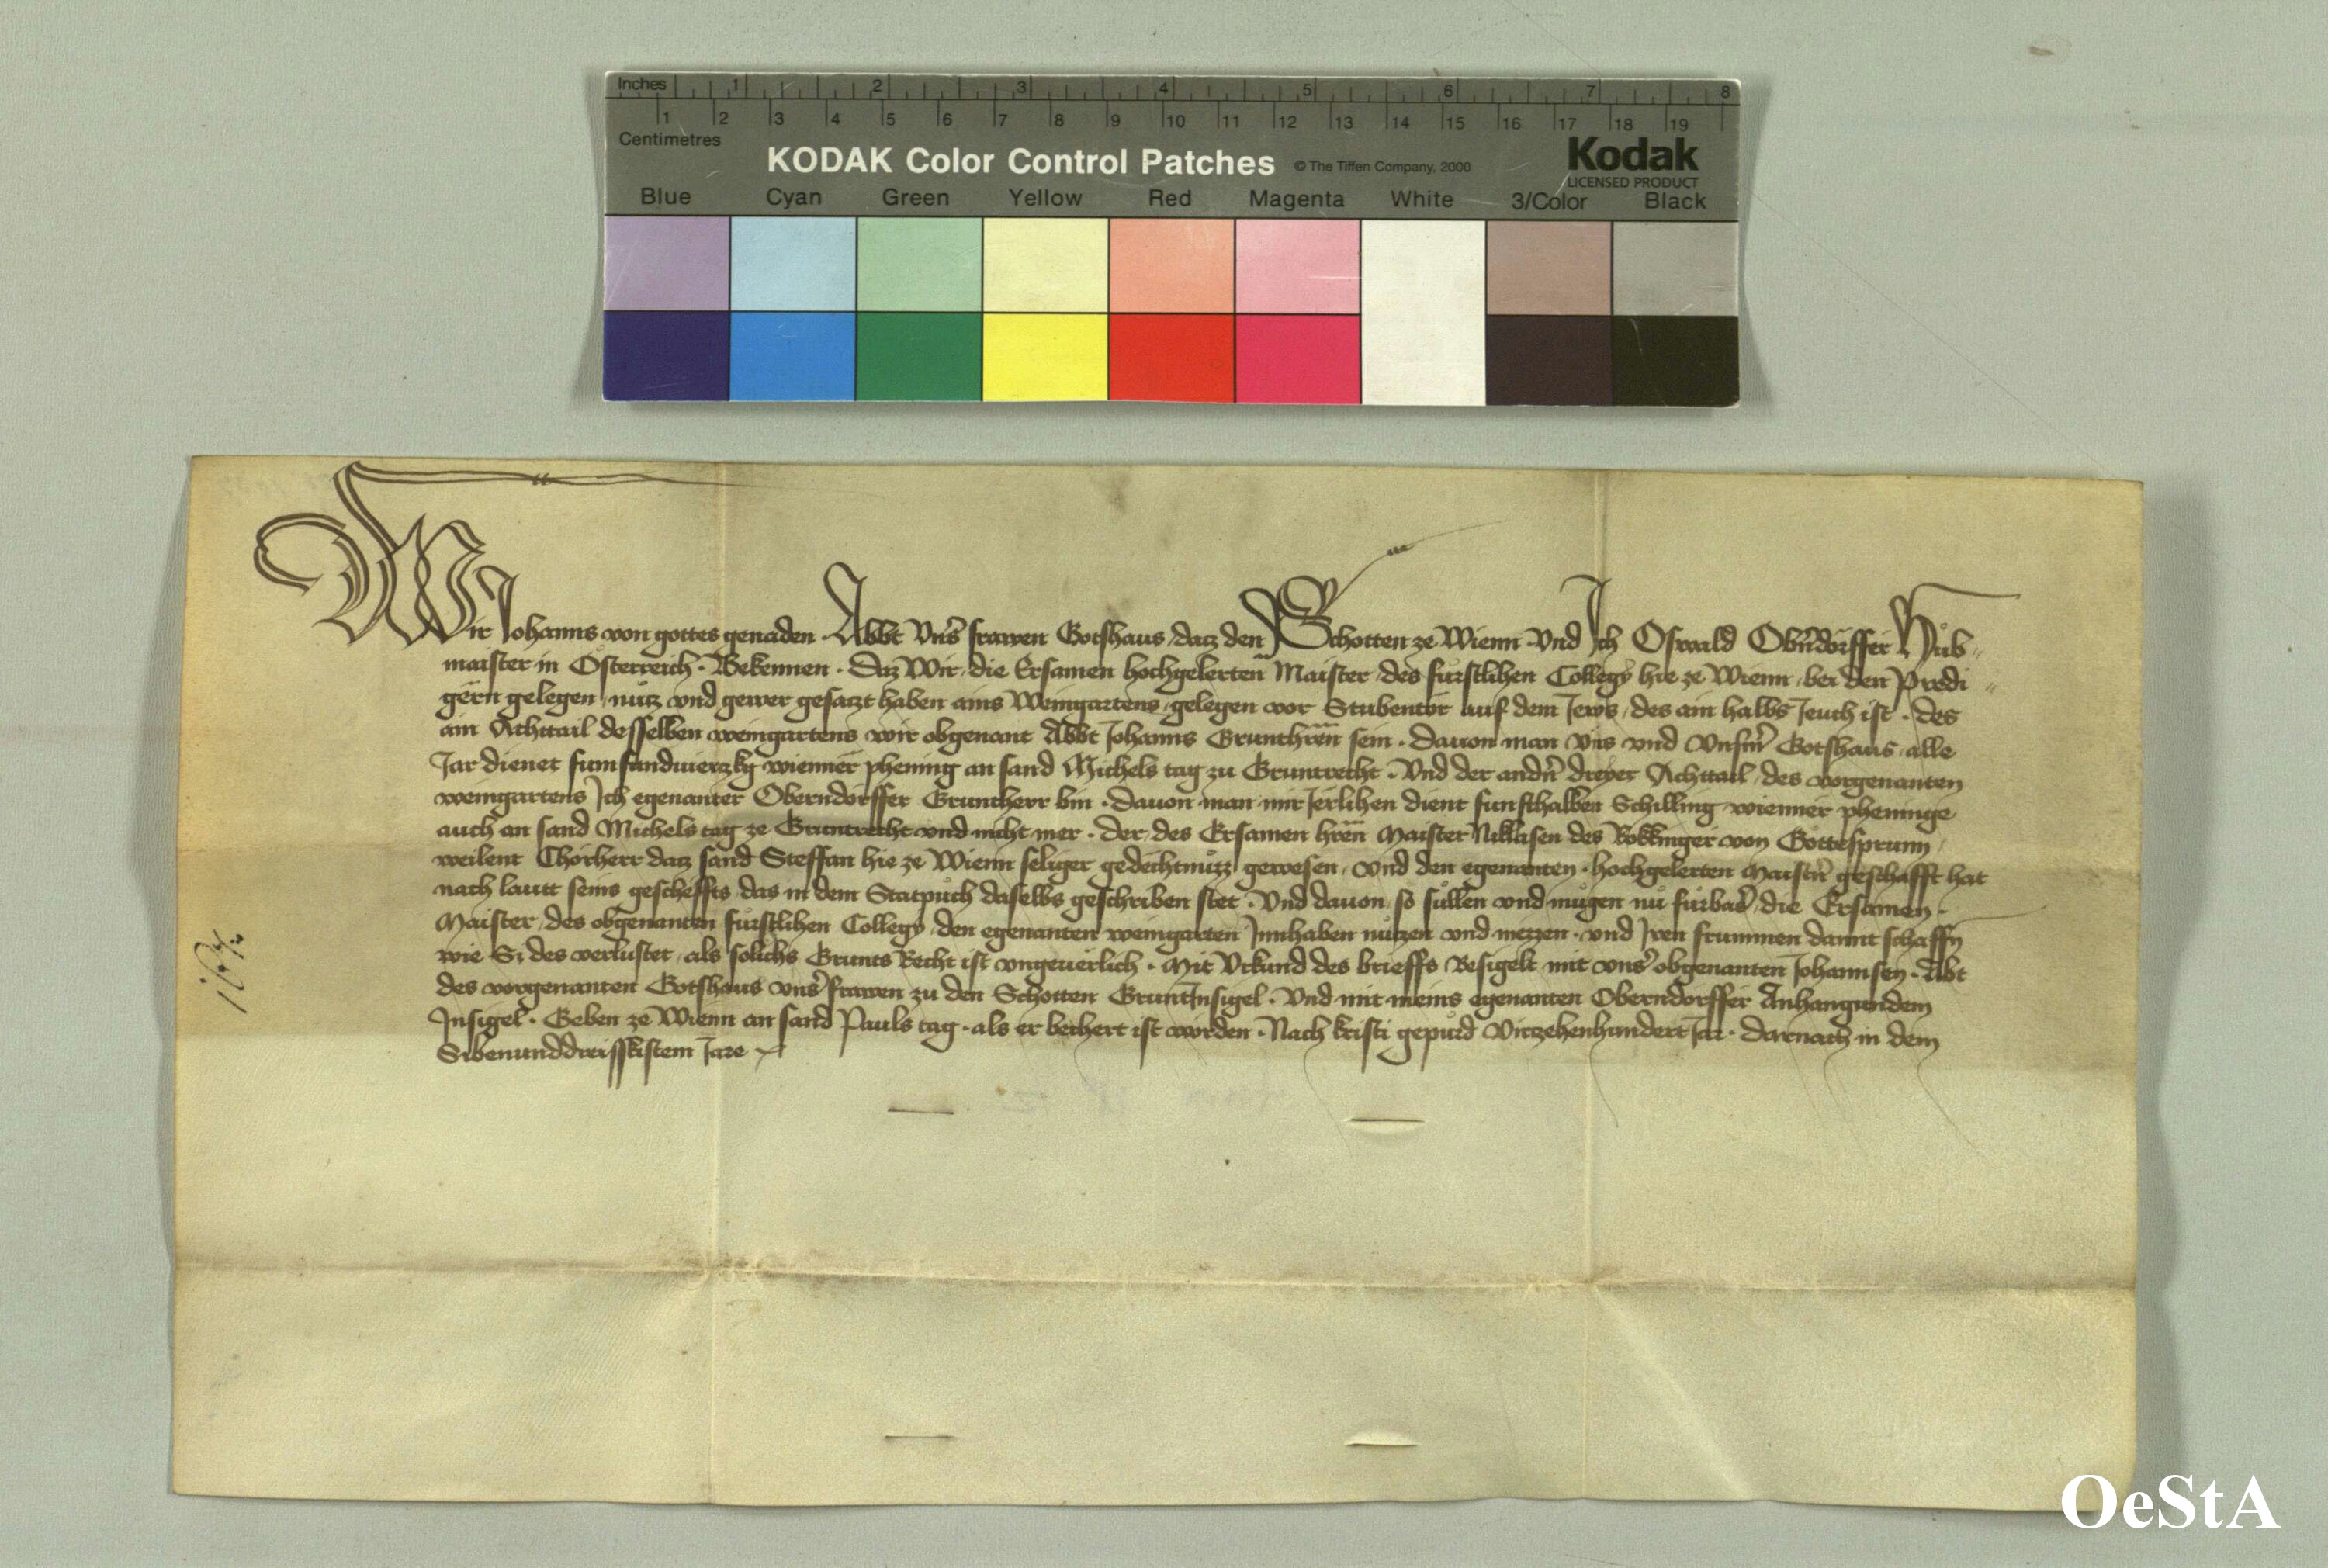 Inches 1 2 3 4 5 6 7 8
1 2 3 4 5 6 7 8 9 10 11 12 13 14 15 16 17 18 19
Centimetres
KODAK Color Control Patches © The Tiffen Company, 2000 Kodak
LICENSED PRODUCT
Blue Cyan Green Yellow Red Magenta White 3/Color Black
Wir Johanns von gottes genaden · Abbt Vnsˀ frawen Gotshaus datz den Schotten ze Wienn · Vnd Ich Oswald Obˀndorffer Hůb
maister in Österreich · Bekennen · Daz Wir die Ersamen hochgelerten Maister des fürstlihen Collegy hie ze Wienn bei den Predi
gern gelegen nutz vnd gewer gesatzt haben ains Weingartens gelegen vor Stubentor auf dem Jews des ain halbs Jeuch ist · des
ain Achttail desselben weingartens wir obgenant Abbt Johanns Grunthren sein · dauon man vns vnd Vnserm Gotshaus alle
Jar dienet fumfundvierczkg wienner phening an sand Michels tag zu Gruntrecht · Vnd der andern dreyer Achttail des vorgenanten
weingartens Ich egenanter Oberndorffer Gruntherr bin · dauon man mir Jerlihen dient funfthalben Schilling wienner pheninge
auch an sand Michels tag ze Gruntrecht vnd nicht mer · der des Ersamen hren Maister Niklasen des Bokkinger von Göttesprunn
weilent Chorherr datz sand Steffan hie ze Wienn seliger gedechtnüzz gewesen · vnd den egenanten · hochgelerten Maistern geschafft hat
nach lautt seins gescheffts das in dem Statpuch daselbs geschriben stet · Vnd dauon so süllen vnd mügen nu fürbas die Ersamen ·
Maister des obgenanten fürstlihen Collegy den egenanten weingarten Innhaben nützen vnd niezzen · vnd Iren frummen damit schaffn
wie Si des verlustet als solichs Grunts Recht ist vngeuerlich · Mit Vrkund des brieffs Besigelt mit vnsˀ obgenanten Johannsen · Abt
des vorgenanten Gotshaus vnsˀ frawen zu den Schotten Gruntinsigel · Vnd mit meins egenanten Oberndorffer Anhangundem
Insigel · Geben ze Wienn an sand Pauls tag · als er bechert ist worden · Nach kristi gepurd Virtzehenhundert Jar · darnach in dem
Sibenunddreisskistem Jare
OeStA